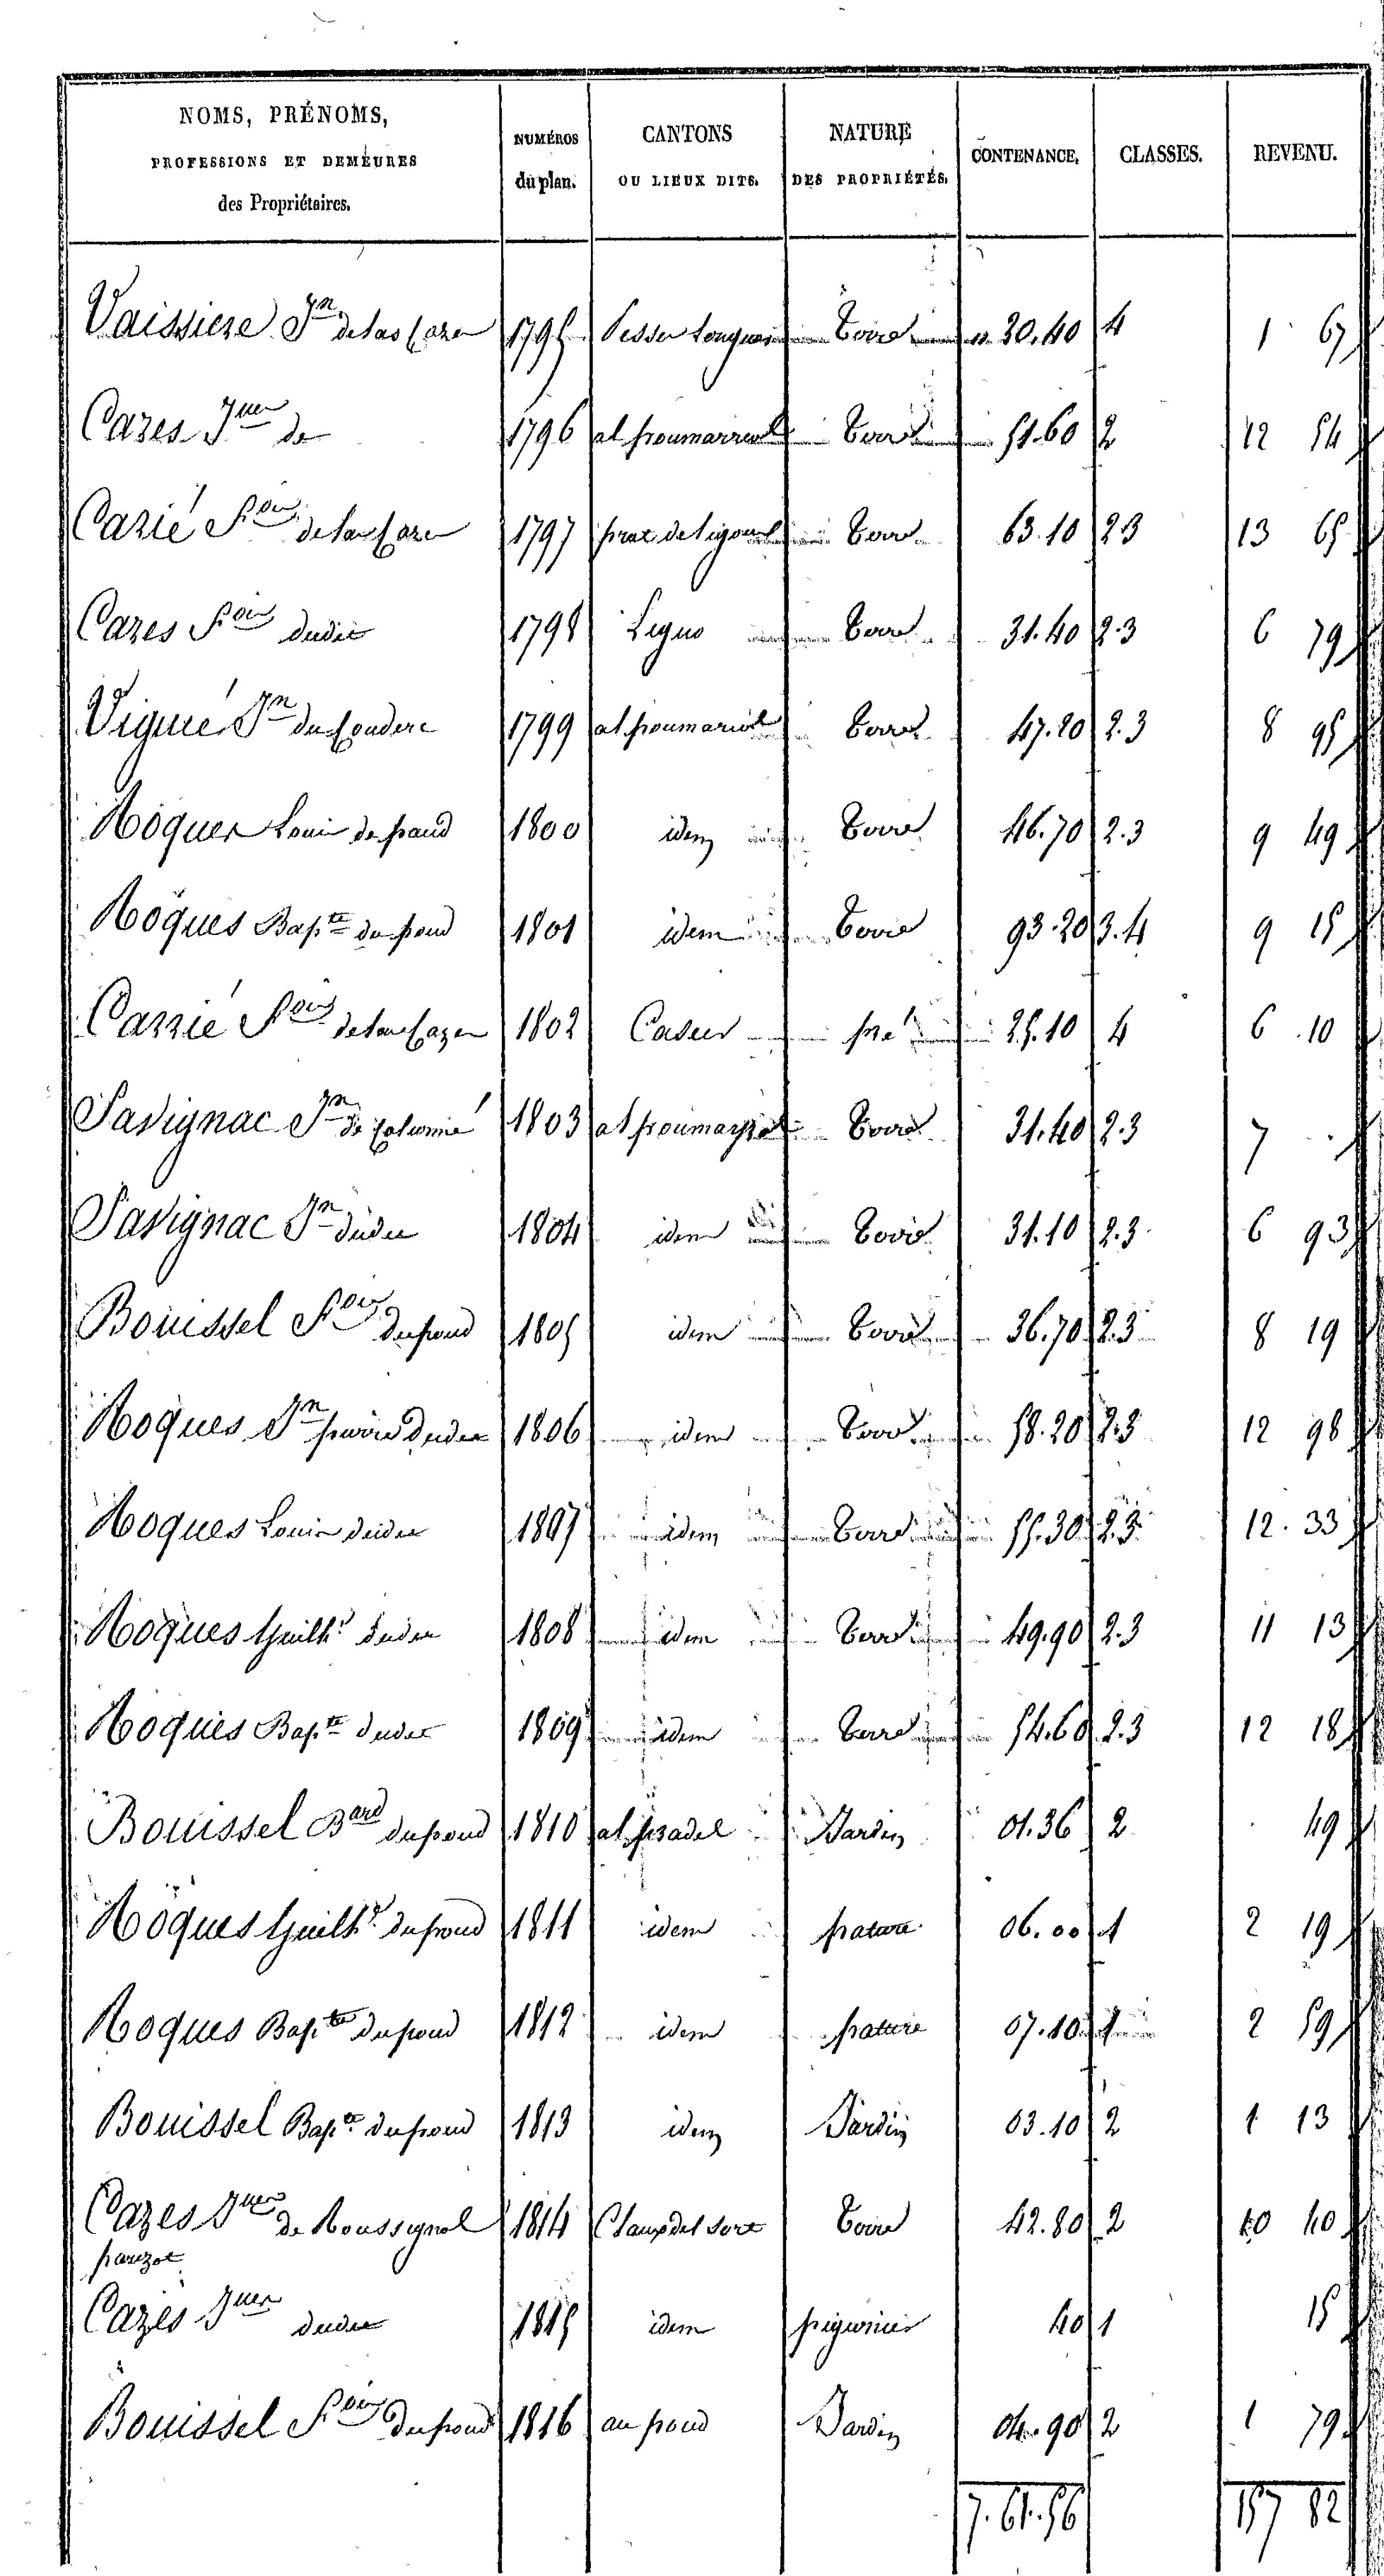 NOMS, PRÉNOMS, PROFESSIONS ET DEMEURES des Propriétaires. NUMÉROS du plan. CANTONS OU LIEUX DITS. NATURE DES PROPRIÉTÉS. CONTENANCE. CLASSES. REVENU.
Vaissiere Jn de las Cazes 1795 terre 30.40 4 1 67
Cazes Jques de 1796 al poumarrel terre 51.60 2 12 54
Cazié Fois de las Cazes 1797 prat del terre 63.10 2 3 13 65
Cazes Fois dudit 1798 terre 31.40 2.3 6 79
Viguié Jn du Couderc 1799 al poumariol terre 47.20 2.3 8 95
Roques Louis du poud 1800 idem terre 46.70 2.3 9 49
Roques Bapte du poud 1801 idem terre 93.20 3.4 9 15
Cazzié Fois de las Cazes 1802 pré 25.10 4 6 10
Savignac Jn de 1803 al terre 31.40 2.3 7
Savignac Jn dudit 1804 idem terre 31.10 2.3 6 93
Bouissel Fois du poud 1805 idem terre 36.70 2.3 8 19
Roques Jn dudit 1806 idem terre 58.20 2.3 12 98
Roques Louis dudit 1807 idem terre 55.30 2.3 12.33
Roques Guilhe dudit 1808 idem terre 49.90 2.3 11 13
Roques Bapte dudit 1809 idem terre 54.60 2.3 12 18
Bouissel Bard du poud 1810 al pradel Jardin 01.36 2 49
Roques Guilhe du poud 1811 idem pature 06.00 1 2 19
Roques Bapte du poud 1812 idem pature 07.10 1 2 59
Bouissel Bapte du poud 1813 idem Jardin 03.10 2 1 13
Cazes Jques de Roussignol 1814 Claux del sort terre 42.80 2 10 40
parizot
Cazes Jques dudit 1815 idem pigeonier 40 1 15
Bouissel Fois du poud 1816 au poud Jardin 04.90 2 1 79
7.61.56 157 82